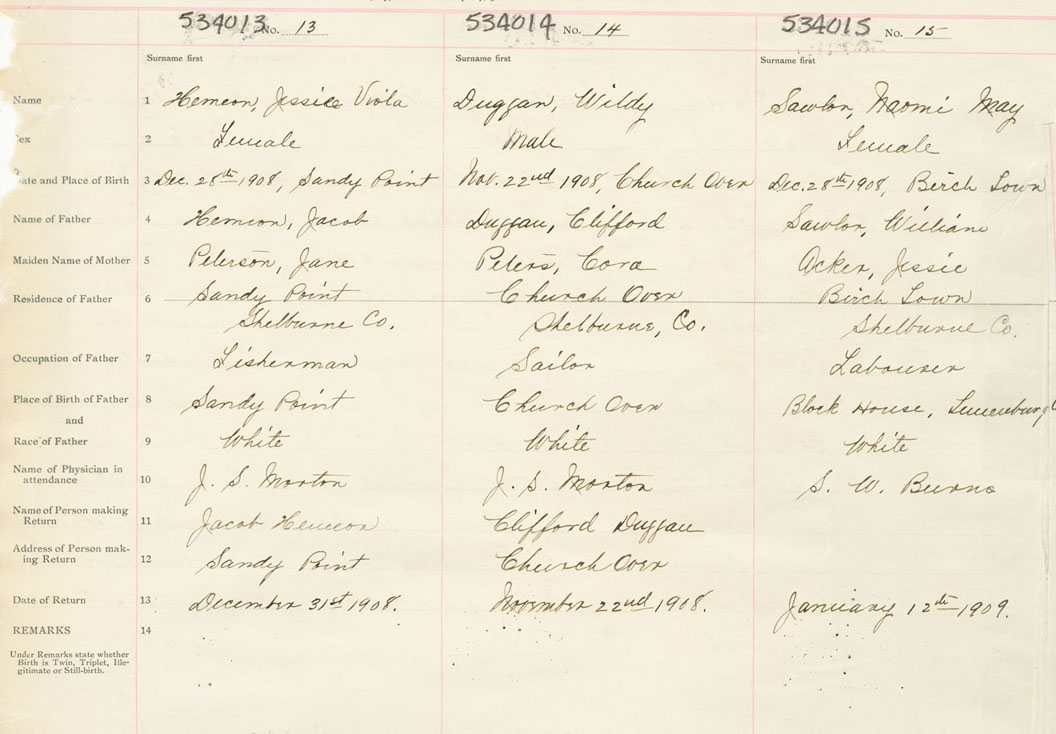 534013 No. 13 534014 No. 14 534015 No. 15
Surname first Surname first Surname first
Name 1 Hemeon, Jessie Viola Duggan, Wildy Sawlor, Naomi May
ex 2 Female Male Female
ate and Place of Birth 3 Dec. 28th 1908, Sandy Point Nov. 22nd 1908, Church Over Dec. 28th 1908, Birch Town
Name of Father 4 Hemeon, Jacob Duggan, Clifford Sawlor, William
Maiden Name of Mother 5 Peterson, Jane Peters, Cora Acker, Jessie
Residence of Father 6 Sandy Point Church Over Birch Town
Shelburne Co. Shelburne, Co. Shelburne Co.
Occupation of Father 7 Fisherman Sailor Labourer
Place of Birth of Father 8 Sandy Point Church Over Block House, Lunenburg
and
Race of Father 9 White White White
Name of Physician in
attendance 10 J. S. Morton J. S. Morton S. W. Burns
Name of Person making
Return 11 Jacob Hemeon Clifford Duggan
Address of Person mak-
ing Return 12 Sandy Point Church Over
Date of Return 13 December 31st 1908. November 22nd 1908. January 12th 1909.
REMARKS 14
Under Remarks state whether
Birth is Twin, Triplet, Ille-
gitimate or Still-birth.